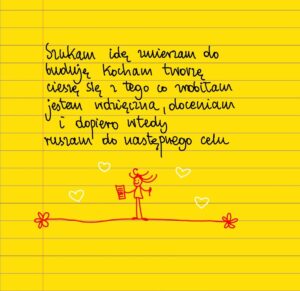 Szukam idę zmierzam do
buduję kocham tworzę
cieszę się z tego co zrobiłam
jestem wdzięczna, doceniam
i dopiero wtedy
ruszam do następnego celu